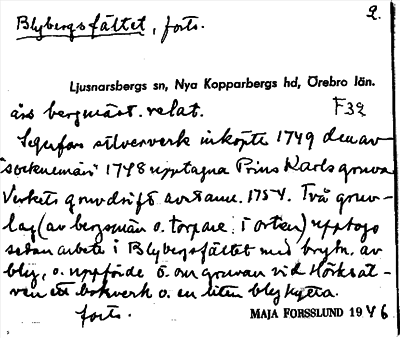 Blybergsfältet, forts.
2.
Ljusnarsbergs sn, Nya Kopparbergs hd, Örebro län.
års bergmäst. relat.
F32
Segerfors silververk inköpte 1749 den av
"sockenmän" 1748 upptagna Prins Karls gruva
Verkets gruvdrift avstann. 1754. Två gruv-
lag (av bergsmän o. torpare i orten) upptogo
sedan arbete i Blybergsfältet med brytn. av
bly, o. uppförde ö om gruvan vid Hörksäl-
ven ett bokverk o. en liten blyhytta.
forts.
MAJA FORSSLUND 1946